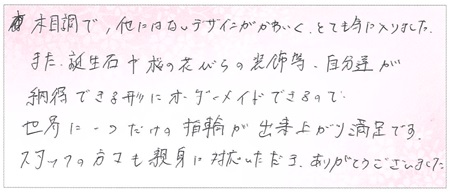 木目調で、他にはないデザインがかわいく、とても気に入りました。
また、誕生石や桜の花びらの装飾等、自分達が
納得できる形にオーダーメイドできるので
世界に一つだけの指輪が出来上がり満足です。
スタッフの方々も親身に対応いただき、ありがとうございました